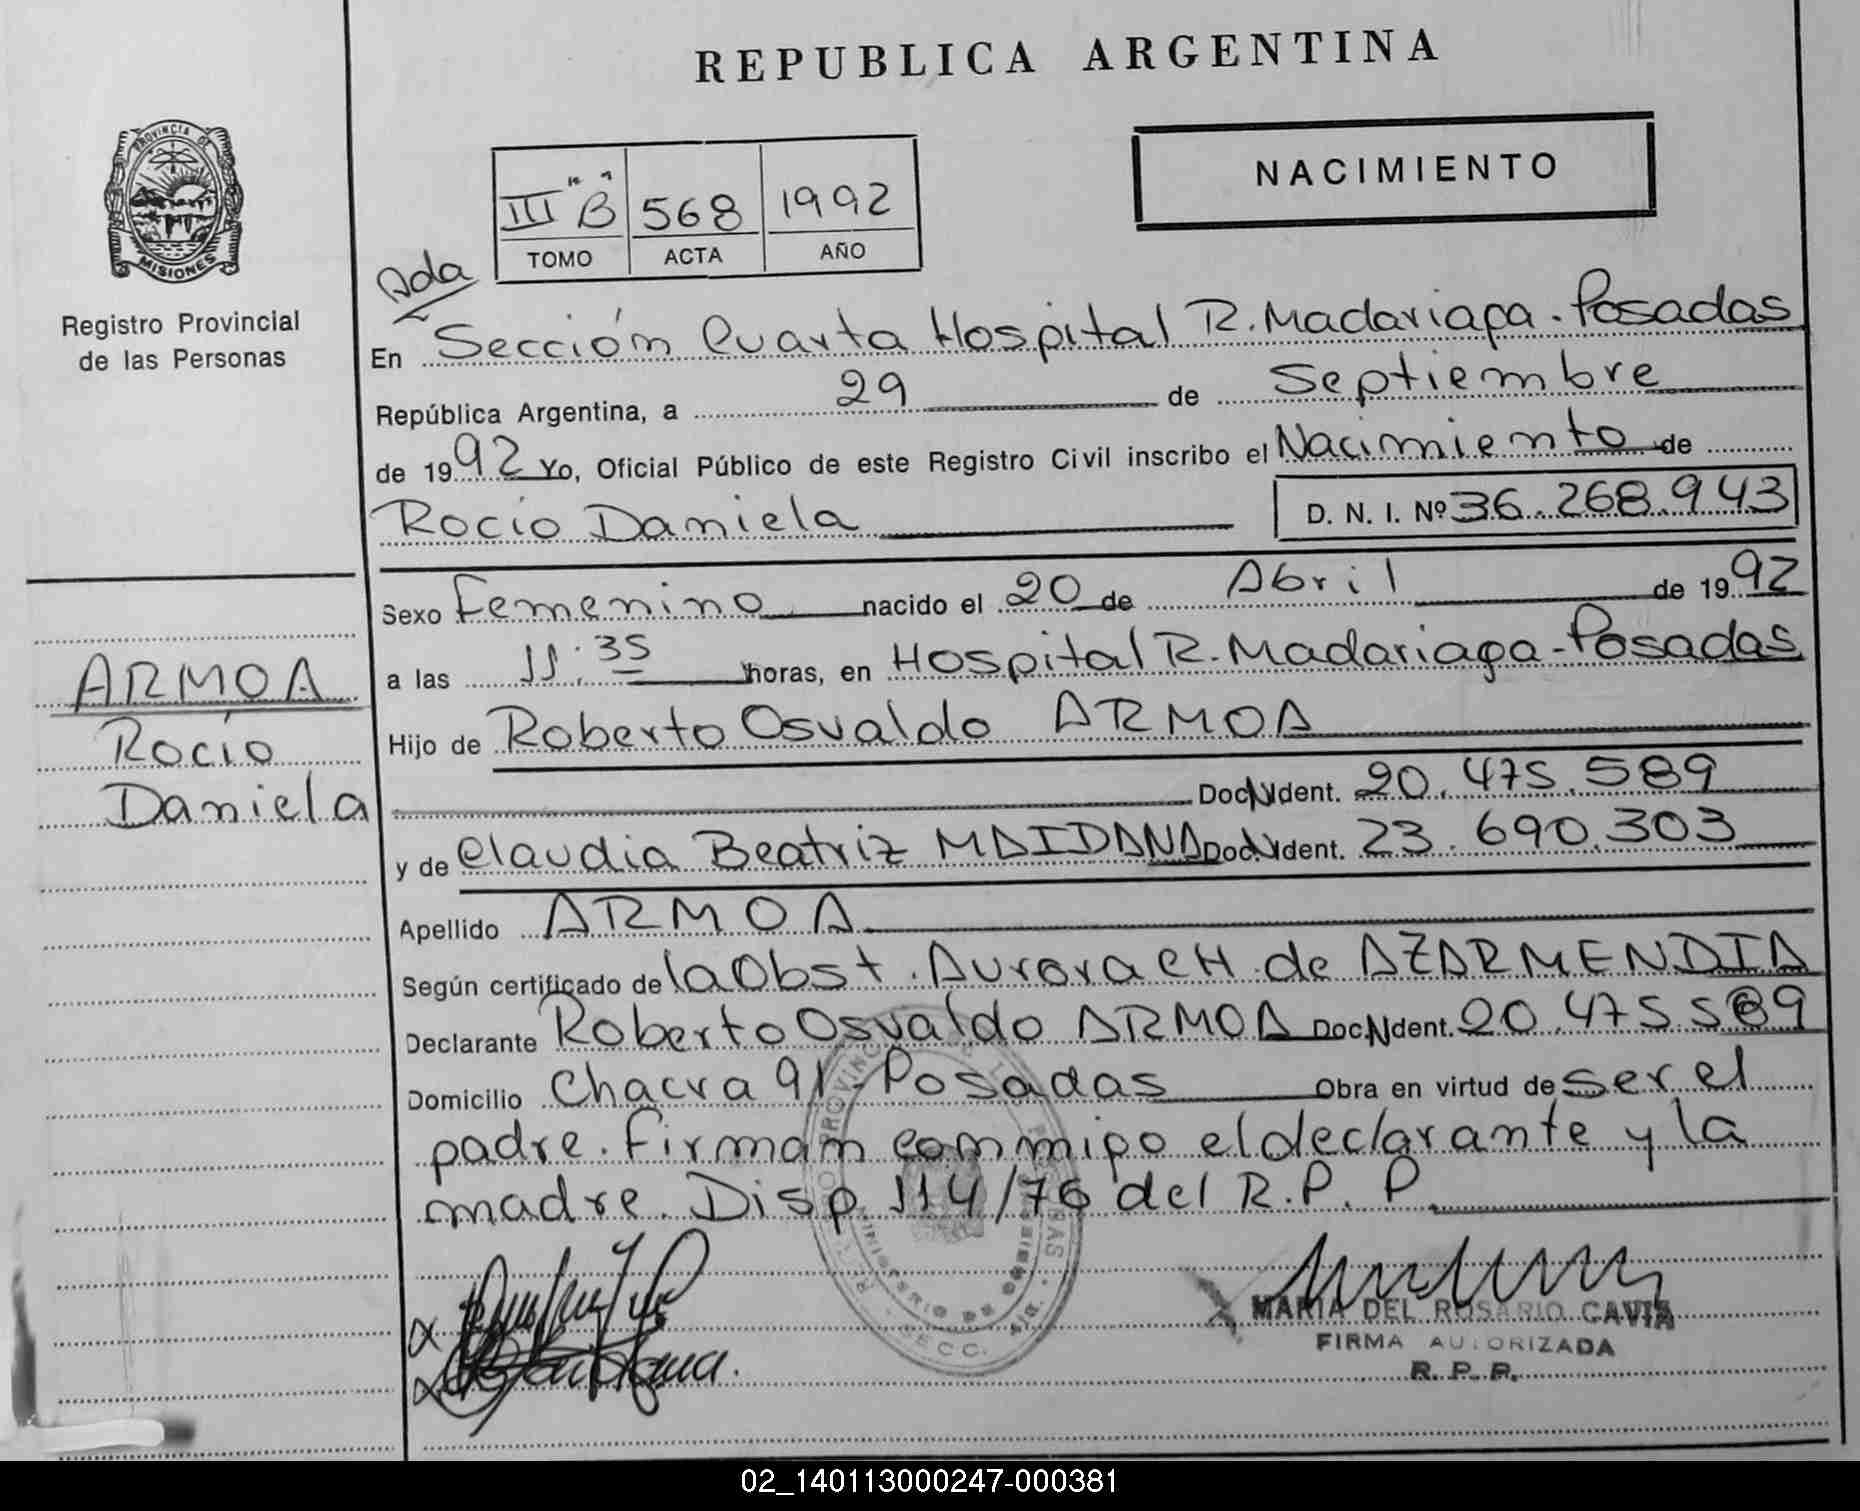 REPUBLICA ARGENTINA
NACIMIENTO
PROVINCIA DE
MISIONES
Registro Provincial
de las Personas
III "B" 568 1992
TOMO ACTA AÑO
Ada
En Sección Cuarta Hospital R. Madariaga - Posadas
República Argentina, a 29 de Septiembre
de 1992 Yo, Oficial Público de este Registro Civil inscribo el Nacimiento de
Rocío Daniela D. N. I. Nº 36.268.943
Sexo Femenino nacido el 20 de Abril de 1992
a las 11:35 horas, en Hospital R. Madariaga - Posadas
Hijo de Roberto Osvaldo ARMOA
Doc. N Ident. 20.475.589
y de Claudia Beatriz MAIDANA Doc. N Ident. 23.690.303
Apellido ARMOA
Según certificado de la Obst. Aurora CH. de AZARMENDIA
Declarante Roberto Osvaldo ARMOA Doc. N Ident. 20.475.589
Domicilio Chacra 91 - Posadas Obra en virtud de ser el
padre. Firman conmigo el declarante y la
madre. Disp 114/76 del R.P.P.
ARMOA
Rocío
Daniela
MARIA DEL ROSARIO CAVIA
FIRMA AUTORIZADA
R. P. P.
02_140113000247-000381